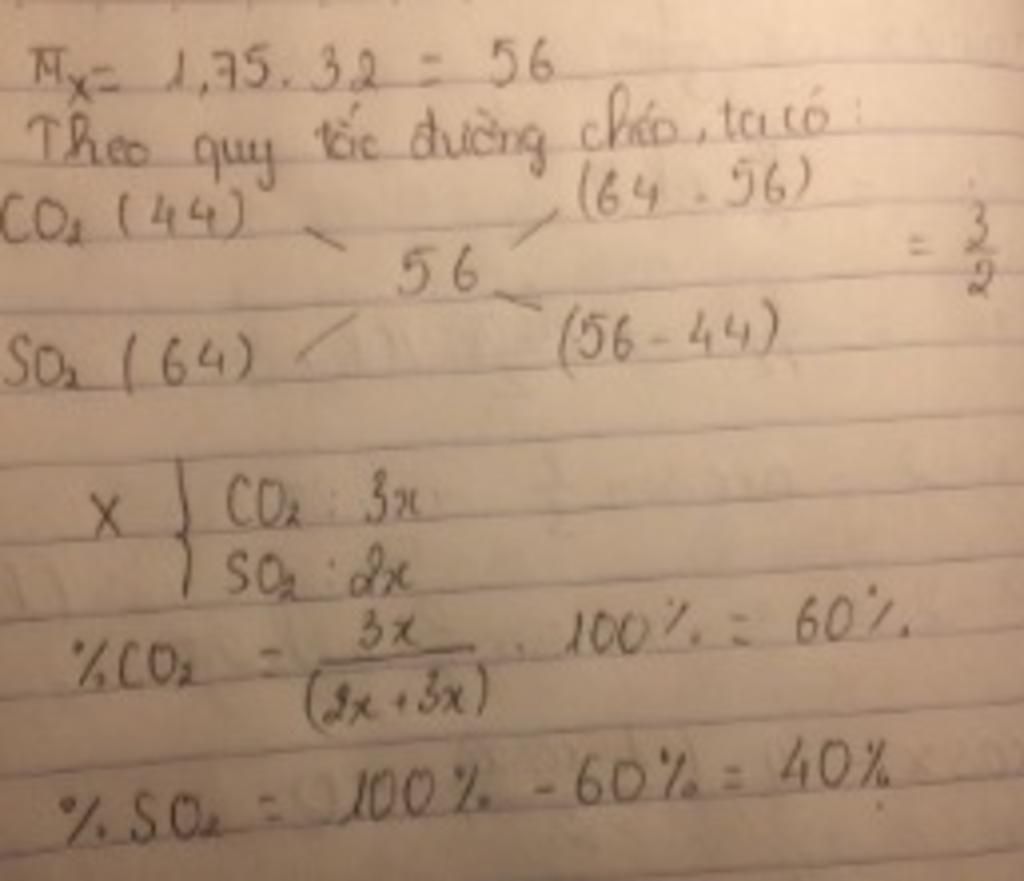 M̅x = 1,75 . 32 = 56
Theo quy tắc đường chéo, ta có :
CO2 (44) (64 - 56)
56 = 3/2
SO2 (64) (56 - 44)
X } CO2 : 3x
SO2 : 2x
%CO2 = 3x/(2x+3x) . 100% = 60%.
%SO2 = 100% - 60% = 40%